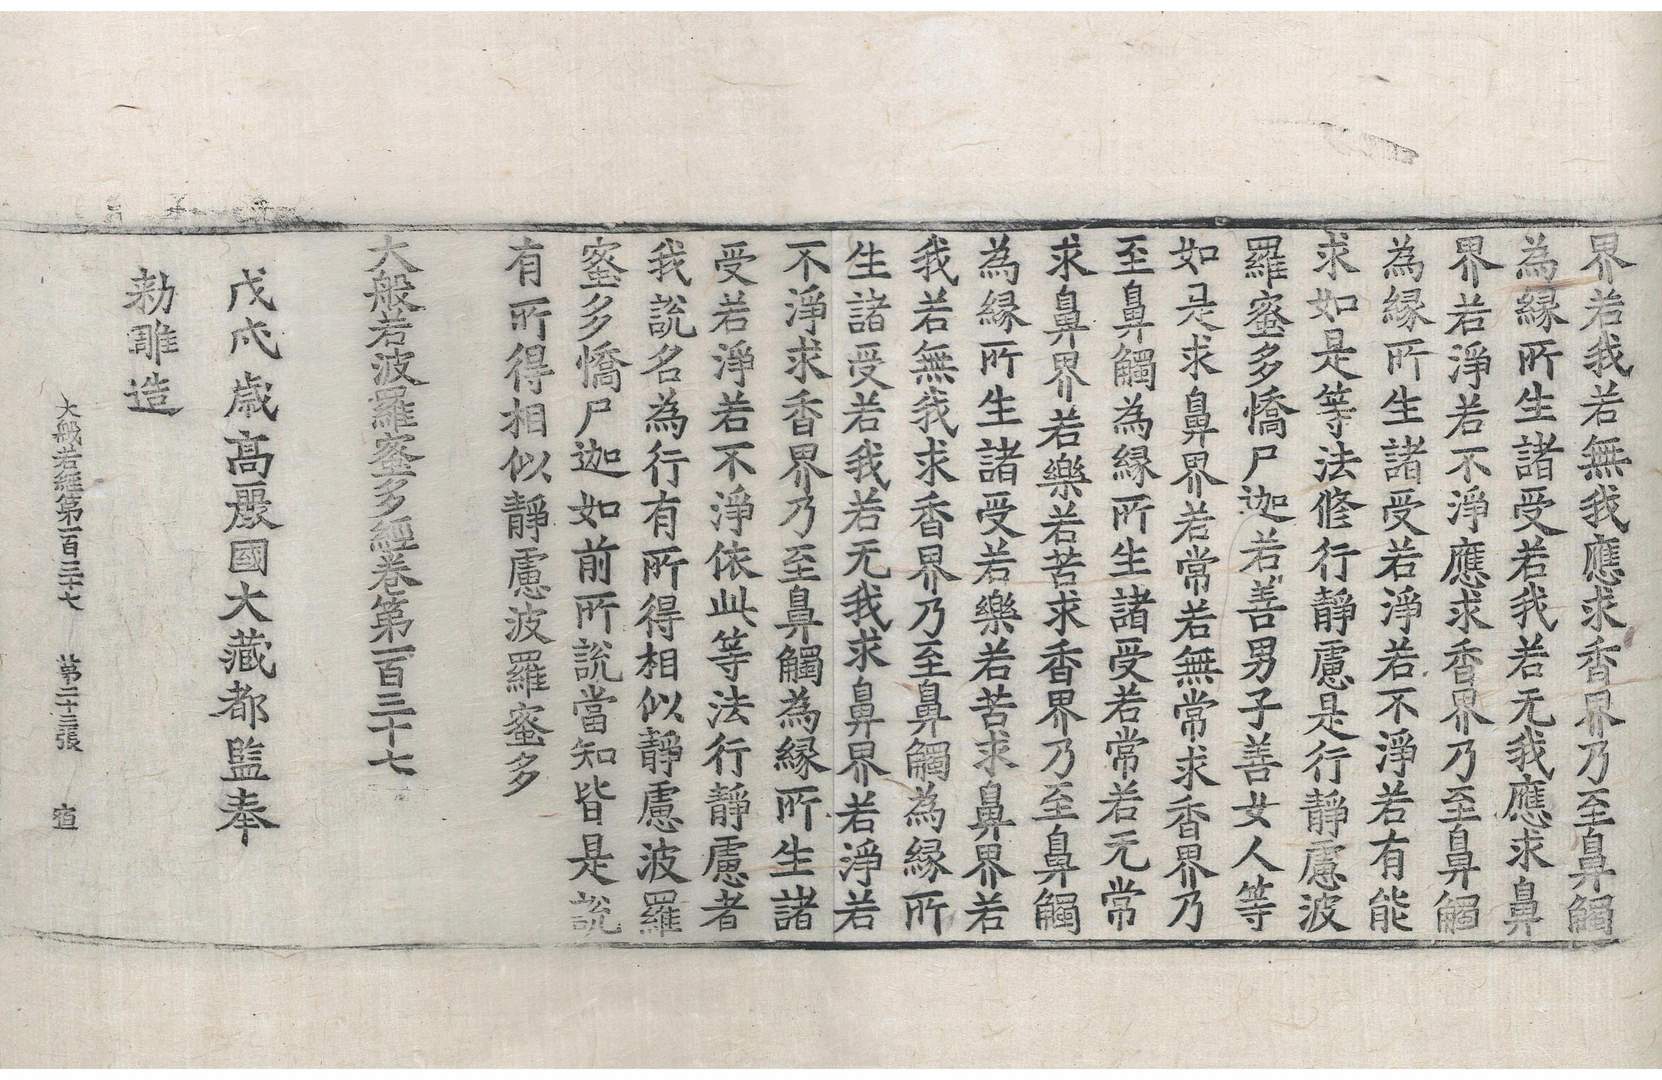 界若我若無我應求香界乃至鼻觸
為縁所生諸受若我若无我應求鼻
界若淨若不淨應求香界乃至鼻觸
為縁所生諸受若淨若不淨若有能
求如是等法修行靜慮是行靜慮波
羅蜜多憍尸迦若善男子善女人等
如是求鼻界若常若無常求香界乃
至鼻觸為縁所生諸受若常若无常
求鼻界若樂若苦求香界乃至鼻觸
為縁所生諸受若樂若苦求鼻界若
我若無我求香界乃至鼻觸為縁所
生諸受若我若无我求鼻界若淨若
不淨求香界乃至鼻觸為縁所生諸
受若淨若不淨依此等法行靜慮者
我說名為行有所得相似靜慮波羅
蜜多憍尸迦如前所說當知皆是說
有所得相似靜慮波羅蜜多
大般若波羅蜜多經卷第一百三十七
戊戌歲高麗國大藏都監奉
勑雕造
大般若經第一百三十七 第二十三張 宙